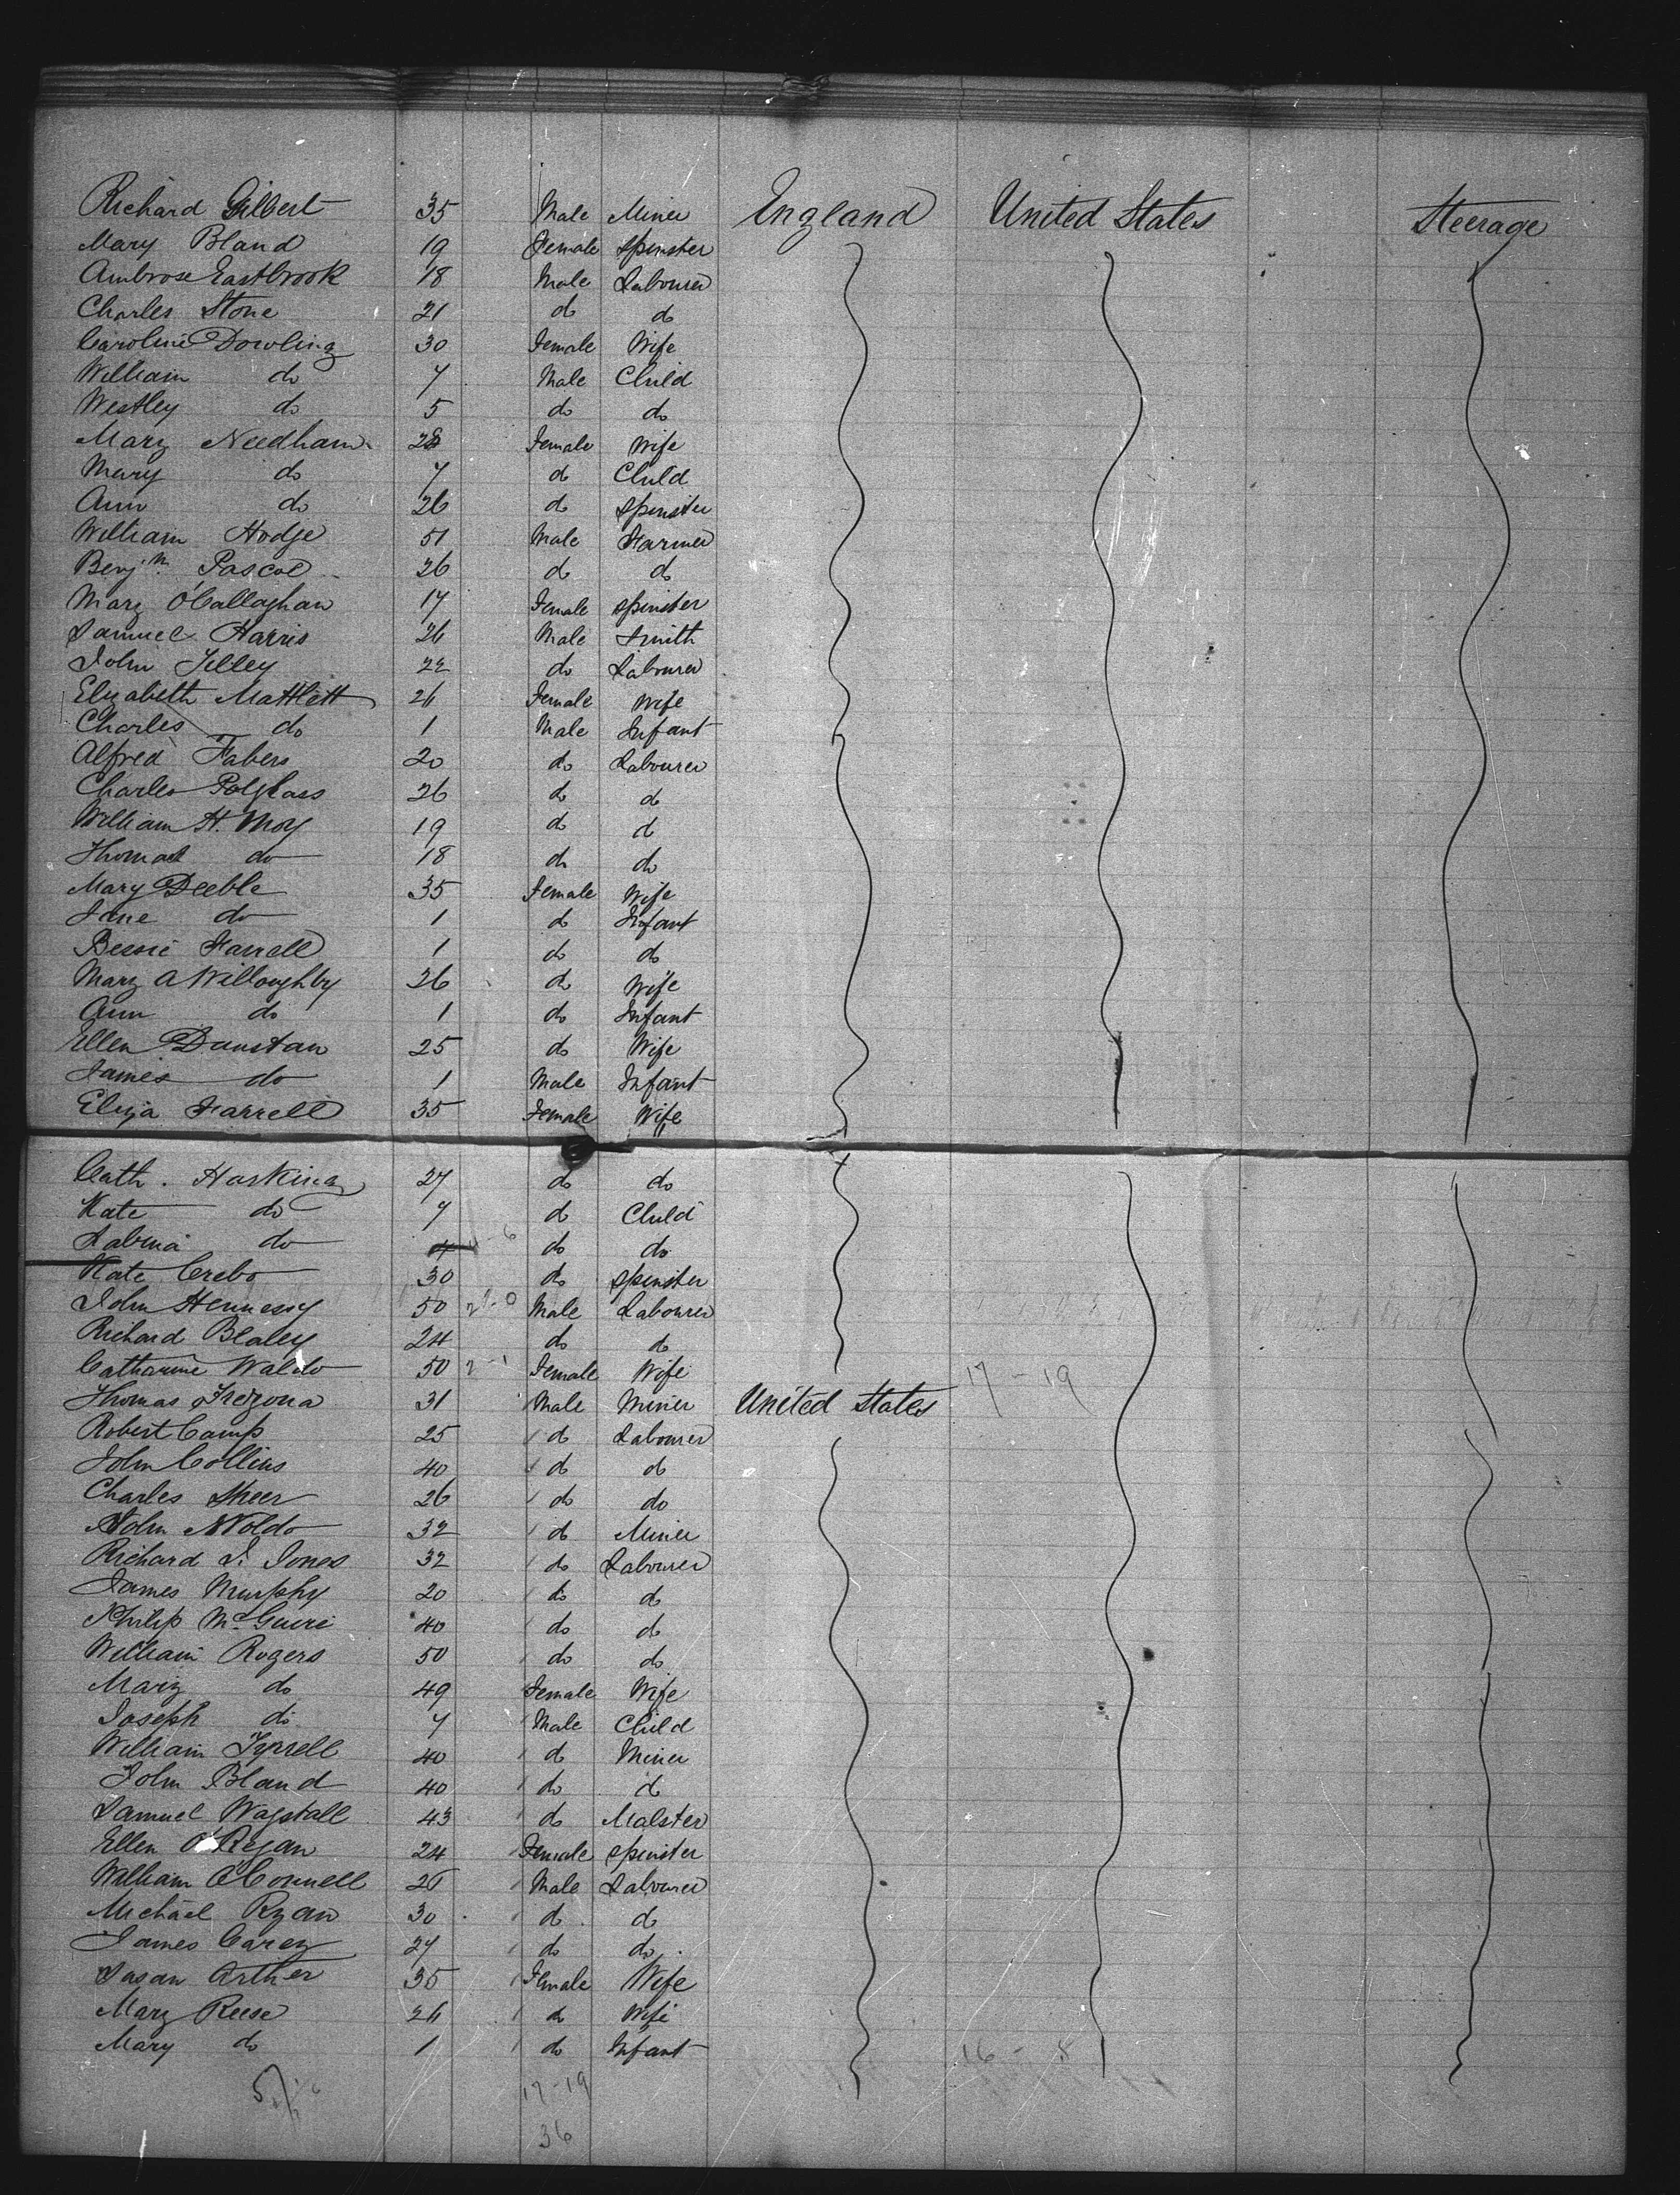 Richard Gilbert 35 Male Miner England United States Steerage
Mary Bland 19 Female Spinster
Ambrose Eastbrook 18 Male Labourer
Charles Stone 21 do do
Caroline Dowling 30 Female Wife
William do 7 Male Child
Westley do 5 do do
Mary Needham 28 Female Wife
Mary do 7 do Child
Ann do 26 do Spinster
William Hodge 51 Male Farmer
Benjn. Pascoe 26 do do
Mary O'Callaghan 17 Female Spinster
Samuel Harris 26 Male Smith
John Jilley 22 do Labourer
Elizabeth Mattlett 26 Female Wife
Charles do 1 Male Infant
Alfred Fabers 20 do Labourer
Charles Polglass 26 do do
William H. Moy 19 do do
Thomas do 18 do do
Mary Deeble 35 Female Wife
Jane do 1 do Infant
Bessie Farrell 1 do do
Mary A Willoughby 26 do Wife
Ann do 1 do Infant
Ellen Dunstan 25 do Wife
James do 1 Male Infant
Eliza Farrell 35 Female Wife
Cath. Hasking 27 do do
Kate do 7 do Child
Sabina do 4 do do
Kate Crebo 30 do Spinster
John Hennessy 50 Male Labourer
Richard Blaley 24 do do
Catharine Waldo 50 2-1 Female Wife 17-19
Thomas Trezona 31 Male Miner United States
Robert Camp 25 do Labourer
John Collins 40 do do
Charles Skeer 26 do do
John 32 do Miner
Richard S. Jones 32 do Labourer
James Murphy 20 do do
Philip McGuire 40 do do
William Rogers 50 do do
Mary do 49 Female Wife
Joseph do 7 Male Child
William Tyrrell 40 do Miner
John Bland 40 do do
Samuel Wagstall 43 do Malster
Ellen O'Regan 24 Female Spinster
William O'Connell 26 Male Labourer
Michael Ryan 30 do do
James Carey 27 do do
Susan Arther 35 Female Wife
Mary Reese 26 do Wife
Mary do 1 do Infant 16-8
17-19
36